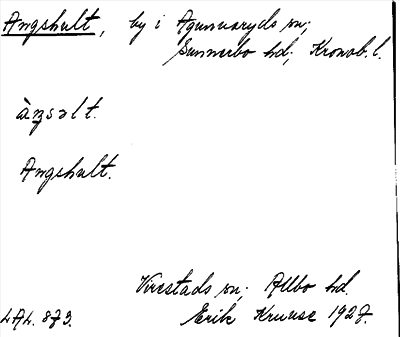 Angshult, by i Agunnaryds sn;
Sunnerbo hd; Kronob. l.
àŋsəlt.
Angshult.
Virestads sn; Allbo hd.
LAL. 873. Erik Kruuse 1927.